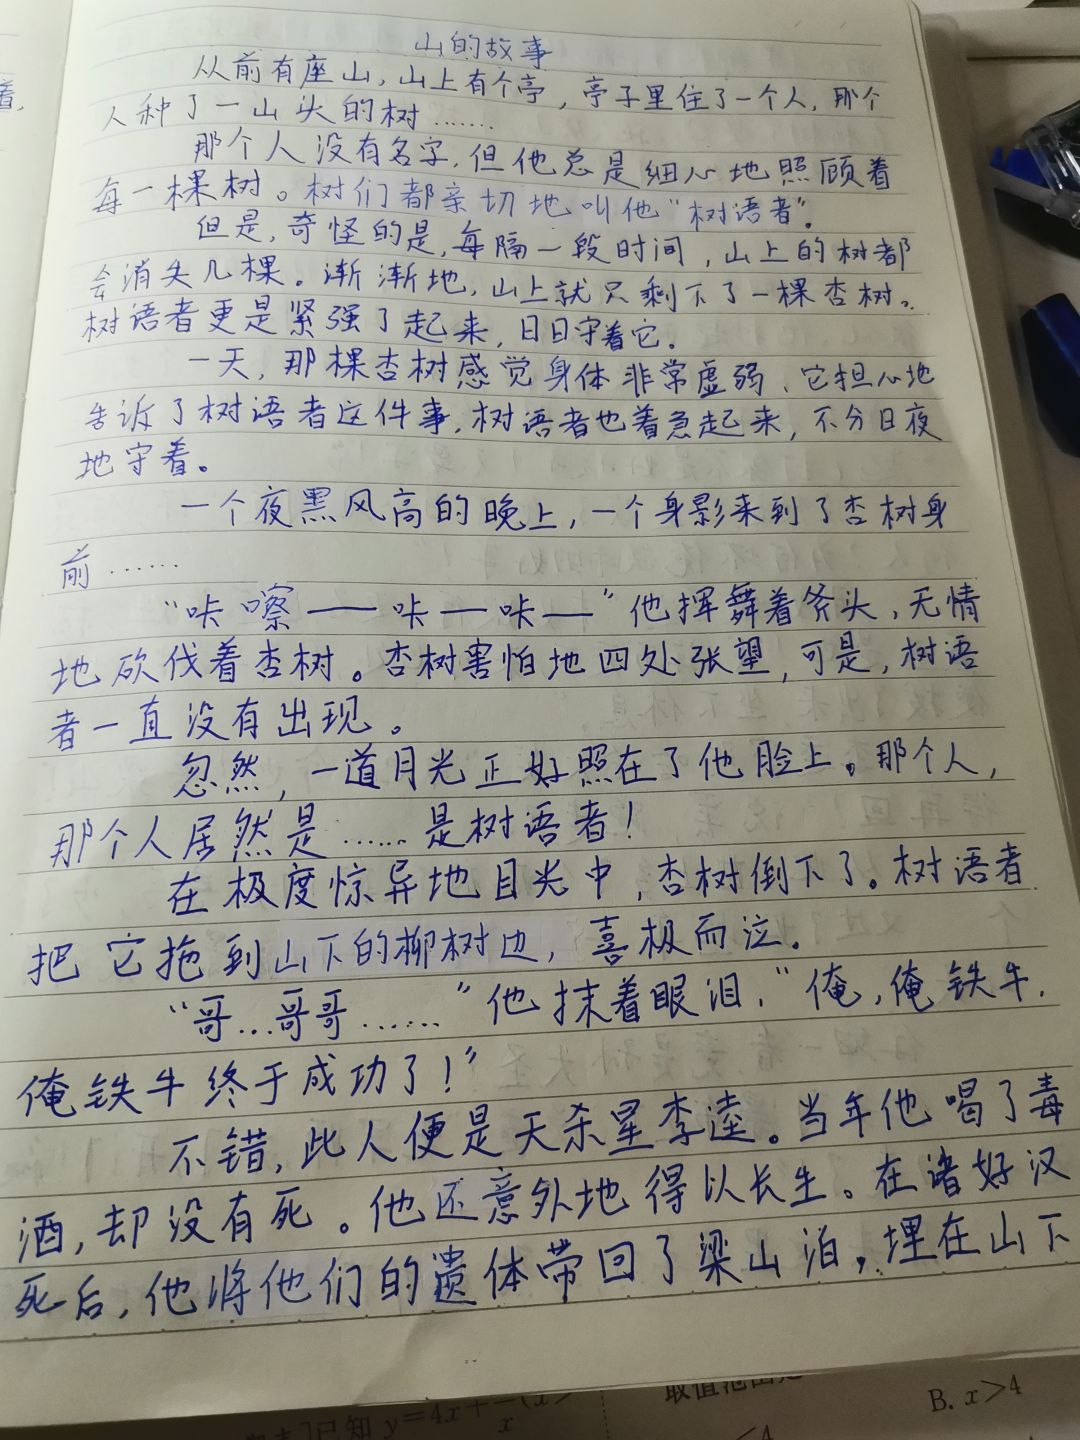 山的故事
从前有座山，山上有个亭，亭子里住了一个人，那个
人种了一山头的树……
那个人没有名字，但他总是细心地照顾着
每一棵树。树们都亲切地叫他“树语者”。
但是，奇怪的是，每隔一段时间，山上的树都
会消失几棵。渐渐地，山上就只剩下了一棵杏树。
树语者更是紧强了起来，日日守着它。
一天，那棵杏树感觉身体非常虚弱，它担心地
告诉了树语者这件事，树语者也着急起来，不分日夜
地守着。
一个夜黑风高的晚上，一个身影来到了杏树身
前……
“咔嚓——咔—咔—”他挥舞着斧头，无情
地砍伐着杏树。杏树害怕地四处张望，可是，树语
者一直没有出现。
忽然，一道月光正好照在了他脸上。那个人，
那个人居然是……是树语者！
在极度惊异地目光中，杏树倒下了。树语者
把它拖到山下的柳树边，喜极而泣。
“哥…哥哥……”他抹着眼泪，“俺，俺铁牛，
俺铁牛终于成功了！”
不错，此人便是天杀星李逵。当年他喝了毒
酒，却没有死。他还意外地得以长生。在诸好汉
死后，他将他们的遗体带回了梁山泊，埋在山下
已知 y=4x+
x
取值范围是
B. x>4